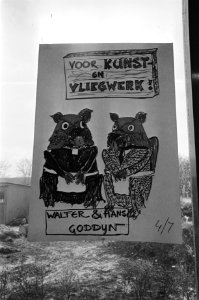 VOOR KUNST
EN
VLIEGWERK!
WALTER & HANS
GODDYN
4/7